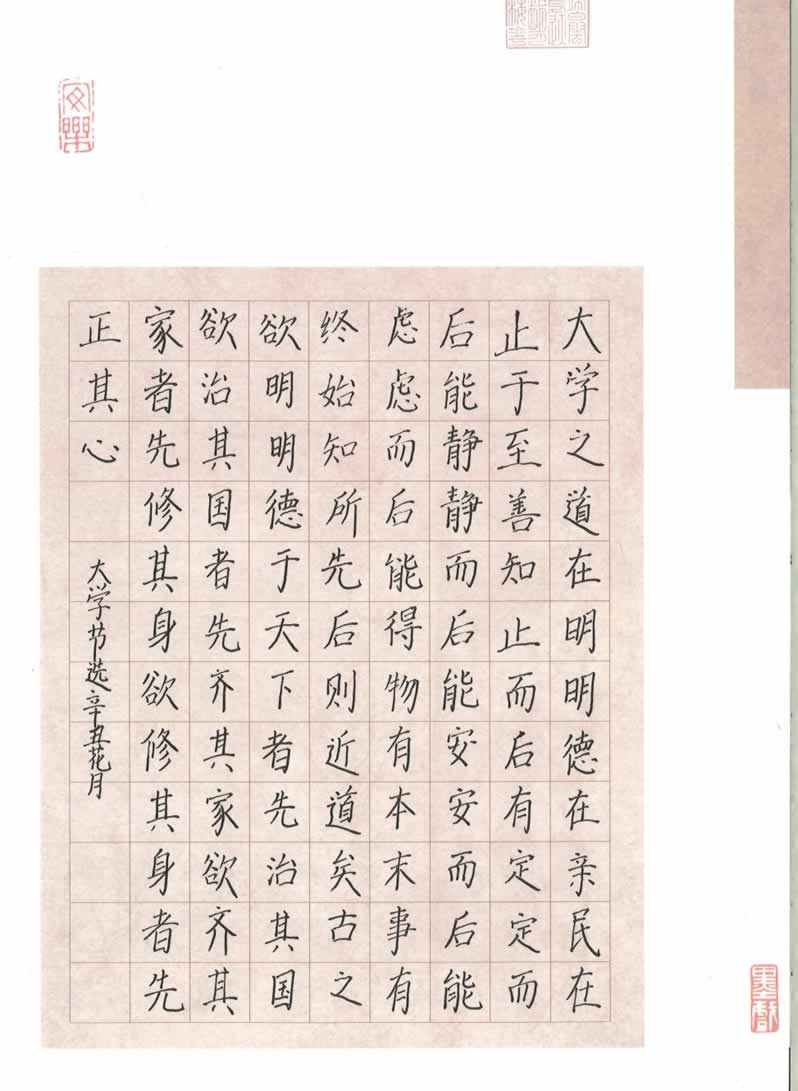 大学之道在明明德在亲民在
止于至善知止而后有定定而
后能静静而后能安安而后能
虑虑而后能得物有本末事有
终始知所先后则近道矣古之
欲明明德于天下者先治其国
欲治其国者先齐其家欲齐其
家者先修其身欲修其身者先
正其心
大学节选辛丑花月
安乐
墨戏